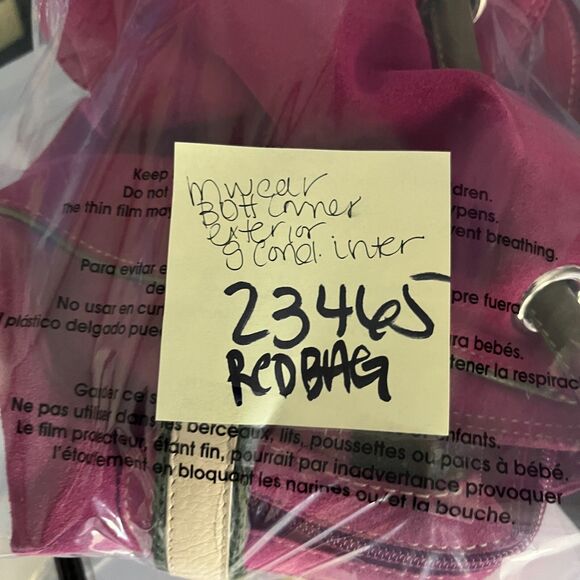 Keep
Do not
The thin film may
dren.
ypens.
vent breathing.
m wear
Bott inner
exterior
g cond. inter
23465
RED BAG
Para evitar e
de
No usar en cun
l plástico delgado pue
pre fuera
ra bebés.
tener la respirac
Gar ce s
Ne pas utiliser dans les berceaux, lits, poussettes ou parcs à bébé.
enfants.
Le film protecteur, étant fin, pourrait par inadvertance provoquer
l'étouffement en bloquant les narines ou/et la bouche.